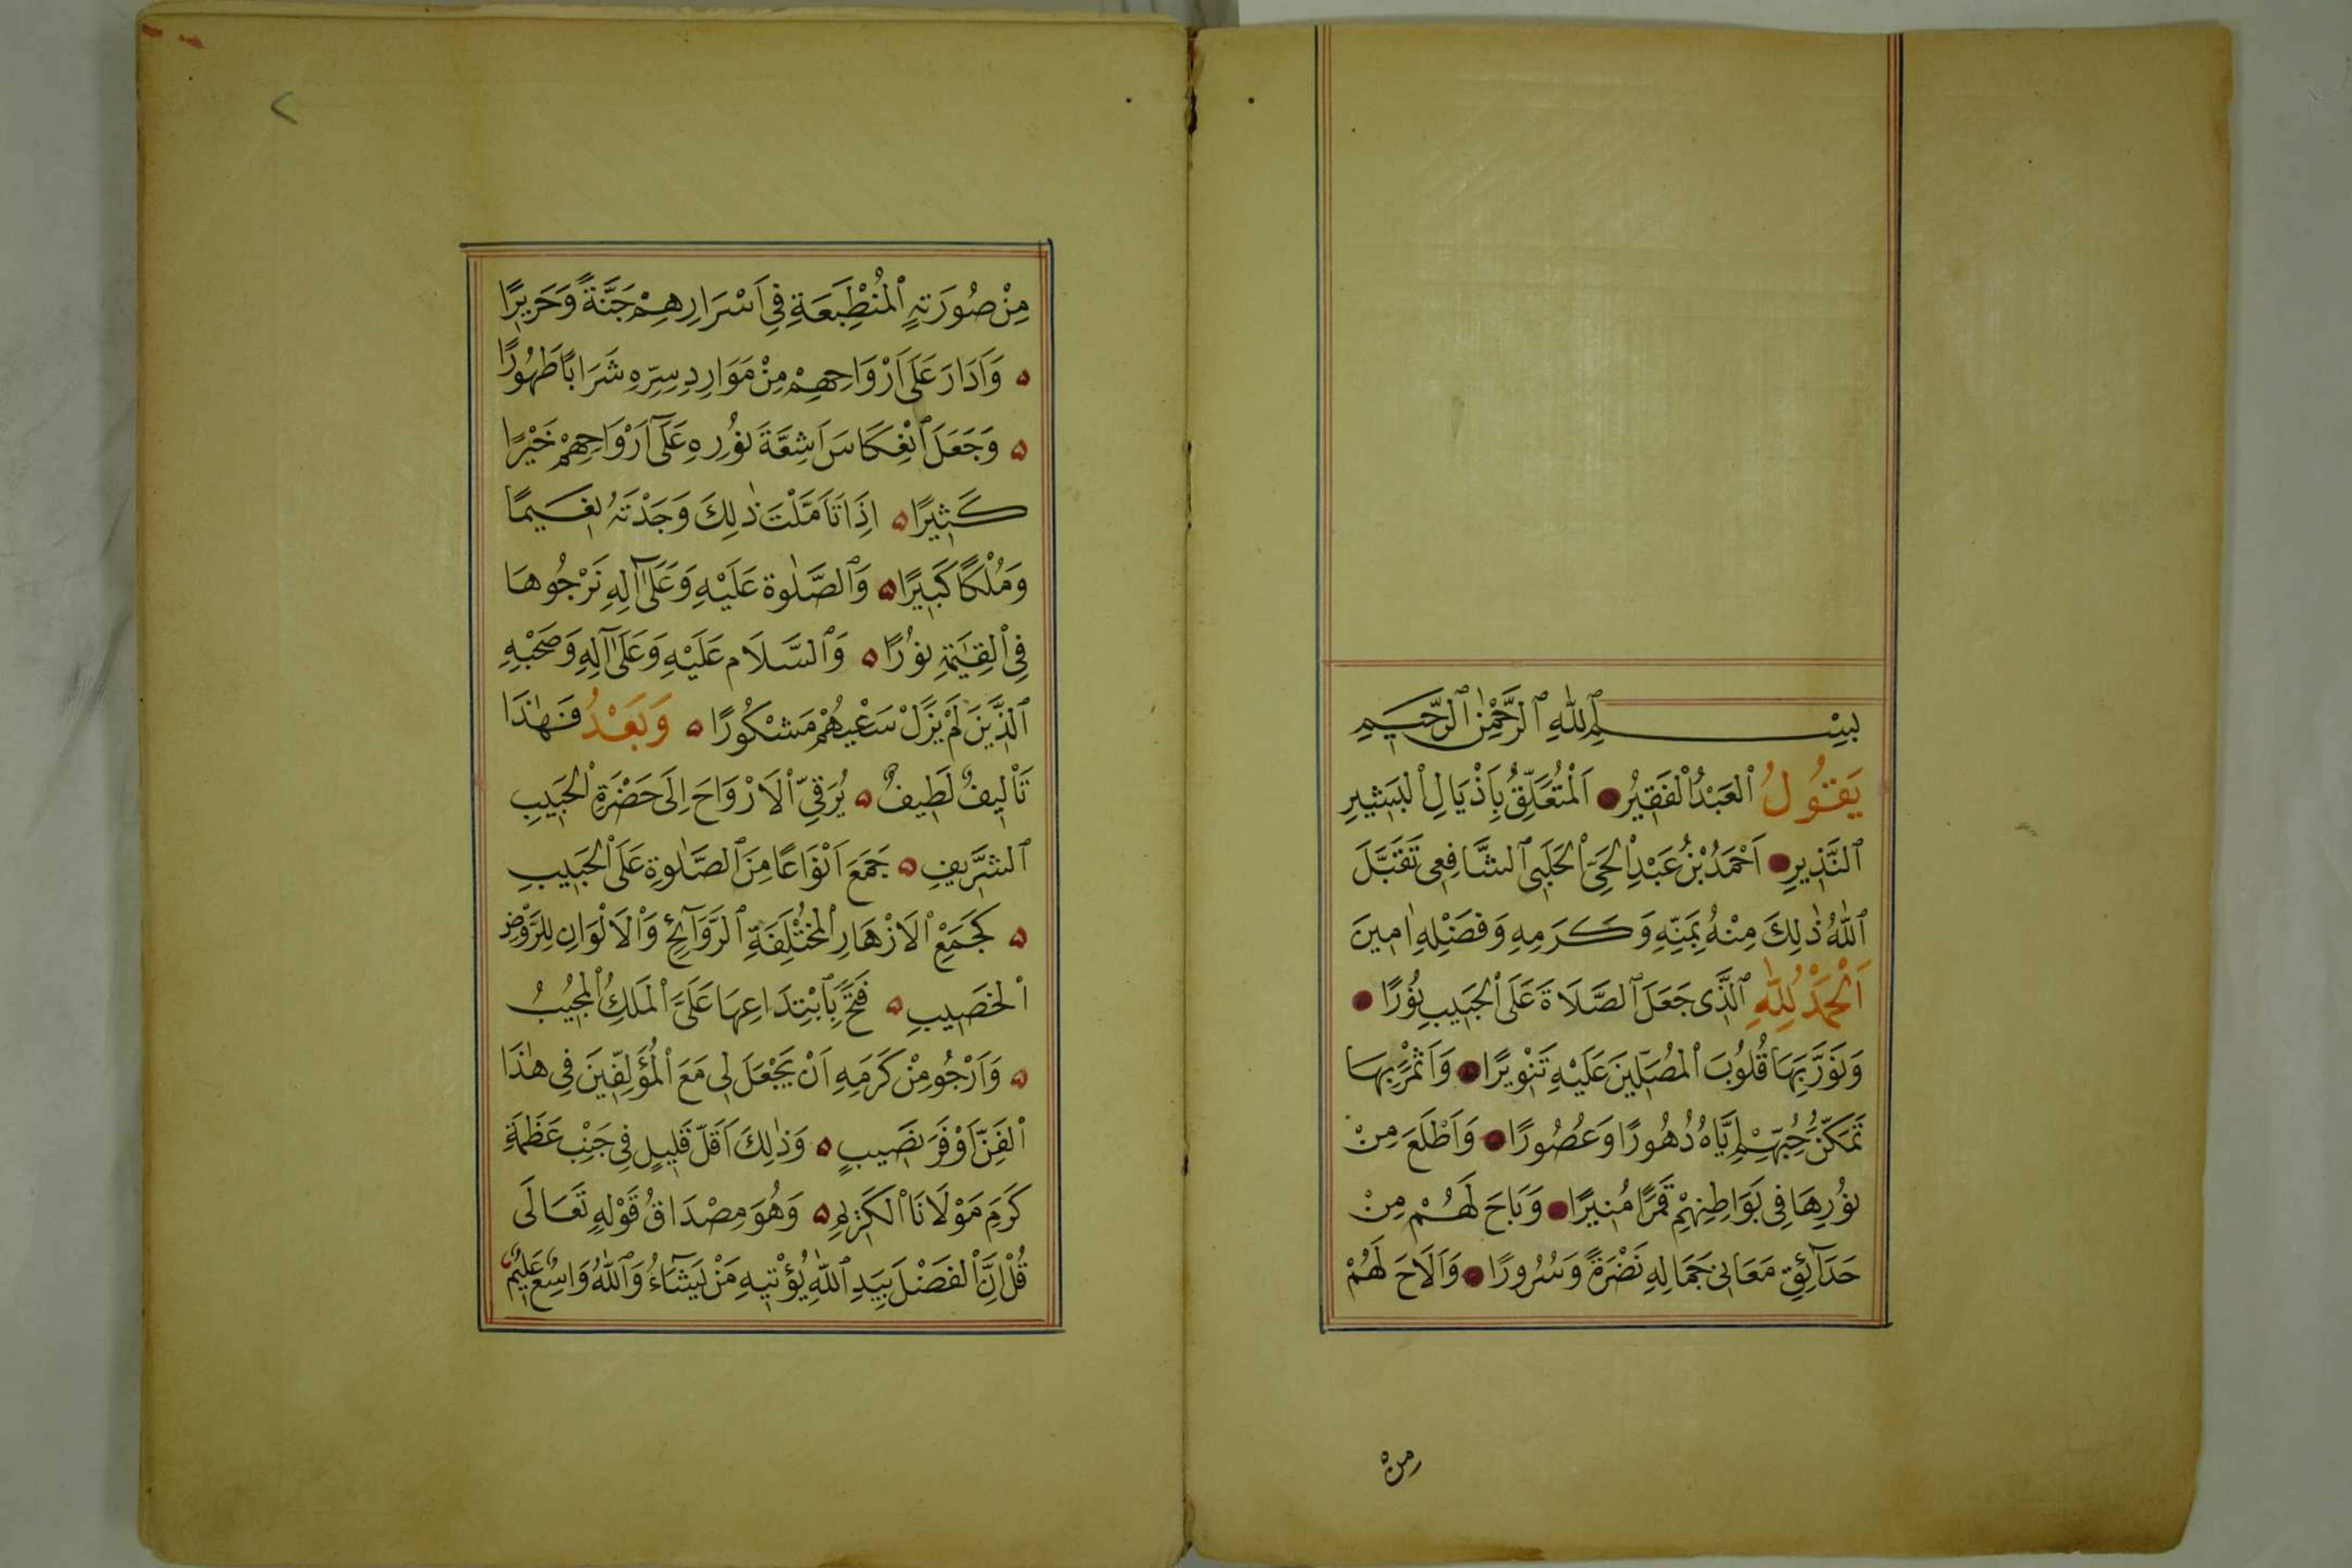 بِسْمِ اللّٰهِ الرَّحْمٰنِ الرَّحِيمِ
يَقُولُ الْعَبْدُ الْفَقِيرُ اَلْمُتَعَلِّقُ بِاَذْيَالِ الْبَشِيرِ
النَّذِيرِ اَحْمَدُ بْنُ عَبْدِ الْحَيِّ الْحَلَبِى الشَّافِعِى تَقَبَّلَ
اللّٰهُ ذٰلِكَ مِنْهُ بِمَنِّهِ وَكَرَمِهِ وَفَضْلِهِ اٰمِينَ
اَلْحَمْدُ لِلّٰهِ الَّذِى جَعَلَ الصَّلَاةَ عَلَى الْحَبِيبِ نُورًا
وَنَوَّرَ بِهَا قُلُوبَ الْمُصَلِّينَ عَلَيْهِ تَنْوِيرًا وَاَثْمَرَ بِهَا
تَمَكُّنَ حُبِّهِمْ اِيَّاهُ دُهُورًا وَعُصُورًا وَاَطْلَعَ مِنْ
نُورِهَا فِى بَوَاطِنِهِمْ قَمَرًا مُنِيرًا وَبَاحَ لَهُمْ مِنْ
حَدَآئِقِ مَعَانِى جَمَالِهِ نَضْرَةً وَسُرُورًا وَاَلَاحَ لَهُمْ
من
٢
مِنْ صُورَتِهِ الْمُنْطَبِعَةِ فِى اَسْرَارِهِمْ جَنَّةً وَحَرِيرًا
وَاَدَارَ عَلَى اَرْوَاحِهِمْ مِنْ مَوَارِدِ سِرِّهِ شَرَابًا طَهُورًا
وَجَعَلَ انْعِكَاسَ اَشِعَّةَ نُورِهِ عَلَى اَرْوَاحِهِمْ خَيْرًا
كَثِيرًا اِذَا تَاَمَّلْتَ ذٰلِكَ وَجَدْتَهُ نَعِيمًا
وَمُلْكًا كَبِيرًا وَالصَّلٰوة عَلَيْهِ وَعَلَى اٰلِهِ نَرْجُوهَا
فِى الْقِيٰمَةِ نُورًا وَالسَّلَام عَلَيْهِ وَعَلَى اٰلِهِ وَصَحْبِهِ
الَّذِينَ لَمْ يَزَلْ سَعْيُهُمْ مَشْكُورًا وَبَعْدُ فَهٰذَا
تَأْلِيفٌ لَطِيفٌ يُرَقِّى الْاَرْوَاحَ اِلَى حَضْرَةِ الْحَبِيبِ
الشَّرِيفِ جَمَعَ اَنْوَاعًا مِنَ الصَّلٰوةِ عَلَى الْحَبِيبِ
كَجَمْعِ الْاَزْهَارِ الْمُخْتَلِفَةِ الرَّوَآئِحِ وَالْاَلْوَانِ لِلرَّوْضِ
الْخَصِيبِ فَتَحَ بِابْتِدَاعِهَا عَلَىَّ الْمَلِكُ الْمُجِيبُ
وَاَرْجُو مِنْ كَرَمِهِ اَنْ يَجْعَلَ لِى مَعَ الْمُؤَلِّفِينَ فِى هٰذَا
الْفَنِّ اَوْفَرَ نَصِيبٍ وَذٰلِكَ اَقَلّ قَلِيلٍ فِى جَنْبِ عَظَمَةِ
كَرَمِ مَوْلَانَا الْكَرِيمِ وَهُوَ مِصْدَاقُ قَوْلِهِ تَعَالَى
قُلْ اِنَّ الْفَضْلَ بِيَدِ اللّٰهِ يُؤْتِيهِ مَنْ يَشَآءُ وَاللّٰهُ وَاسِعٌ عَلِيمٌ